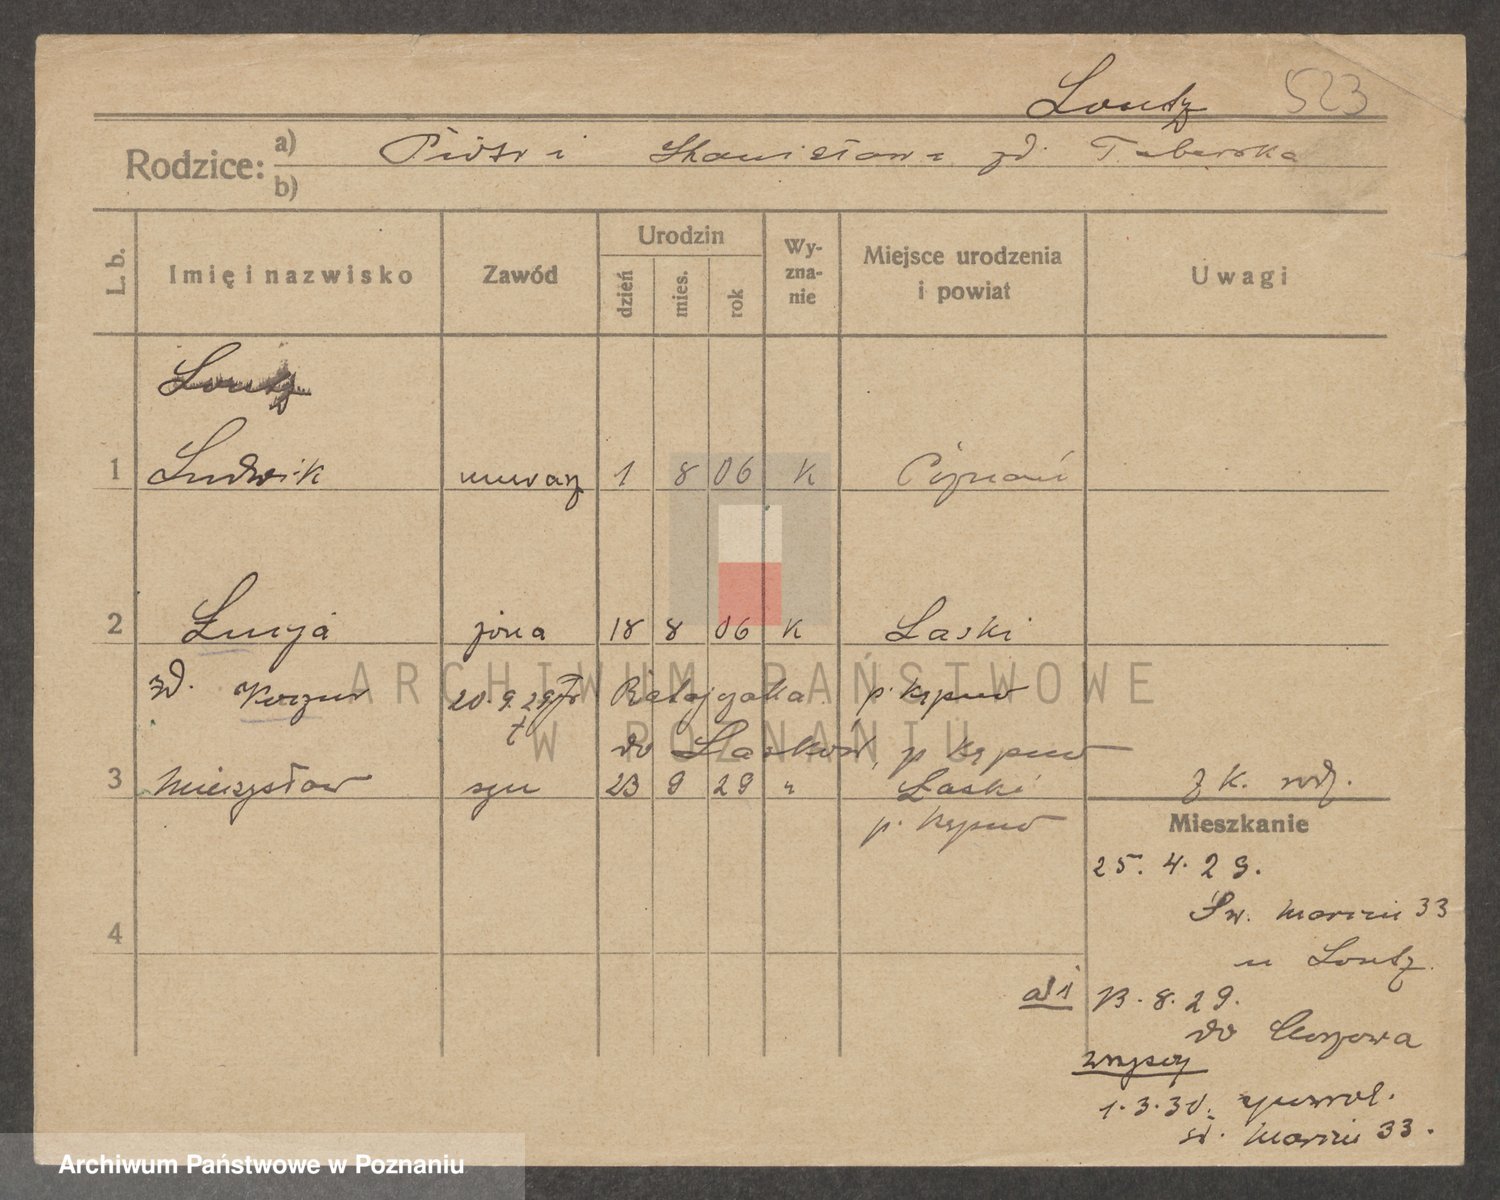 Loutz 523
Rodzice: a) Piotr i Stanisława zd. Taberska
b)
L. b. Imię i nazwisko Zawód Urodzin dzień mies. rok Wyznanie Miejsce urodzenia i powiat Uwagi
Loutz
1 Ludwik murarz 1 8 06 K Poznań
2 Łucja żona 18 8 06 K Laski
zd. Korzun 20.9.29 p. Kępno
do Lasków, p Kępno
3 Mieczysław syn 23 9 29 " Laski z K. rodz.
p. Kępno
Mieszkanie
25. 4. 29.
Św. Marcin 33
4
u Loutz
ad 1 13. 8. 29.
do
wszyscy
1. 3. 30. powrot.
św. Marcin 33.
ARCHIWUM PAŃSTWOWE
W POZNANIU
Archiwum Państwowe w Poznaniu